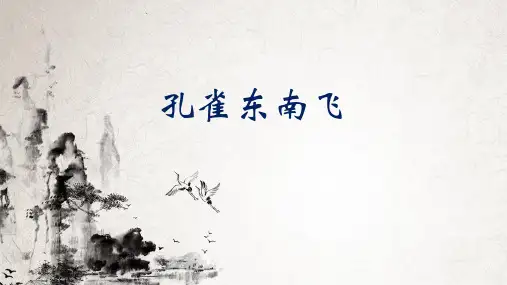 孔雀东南飞